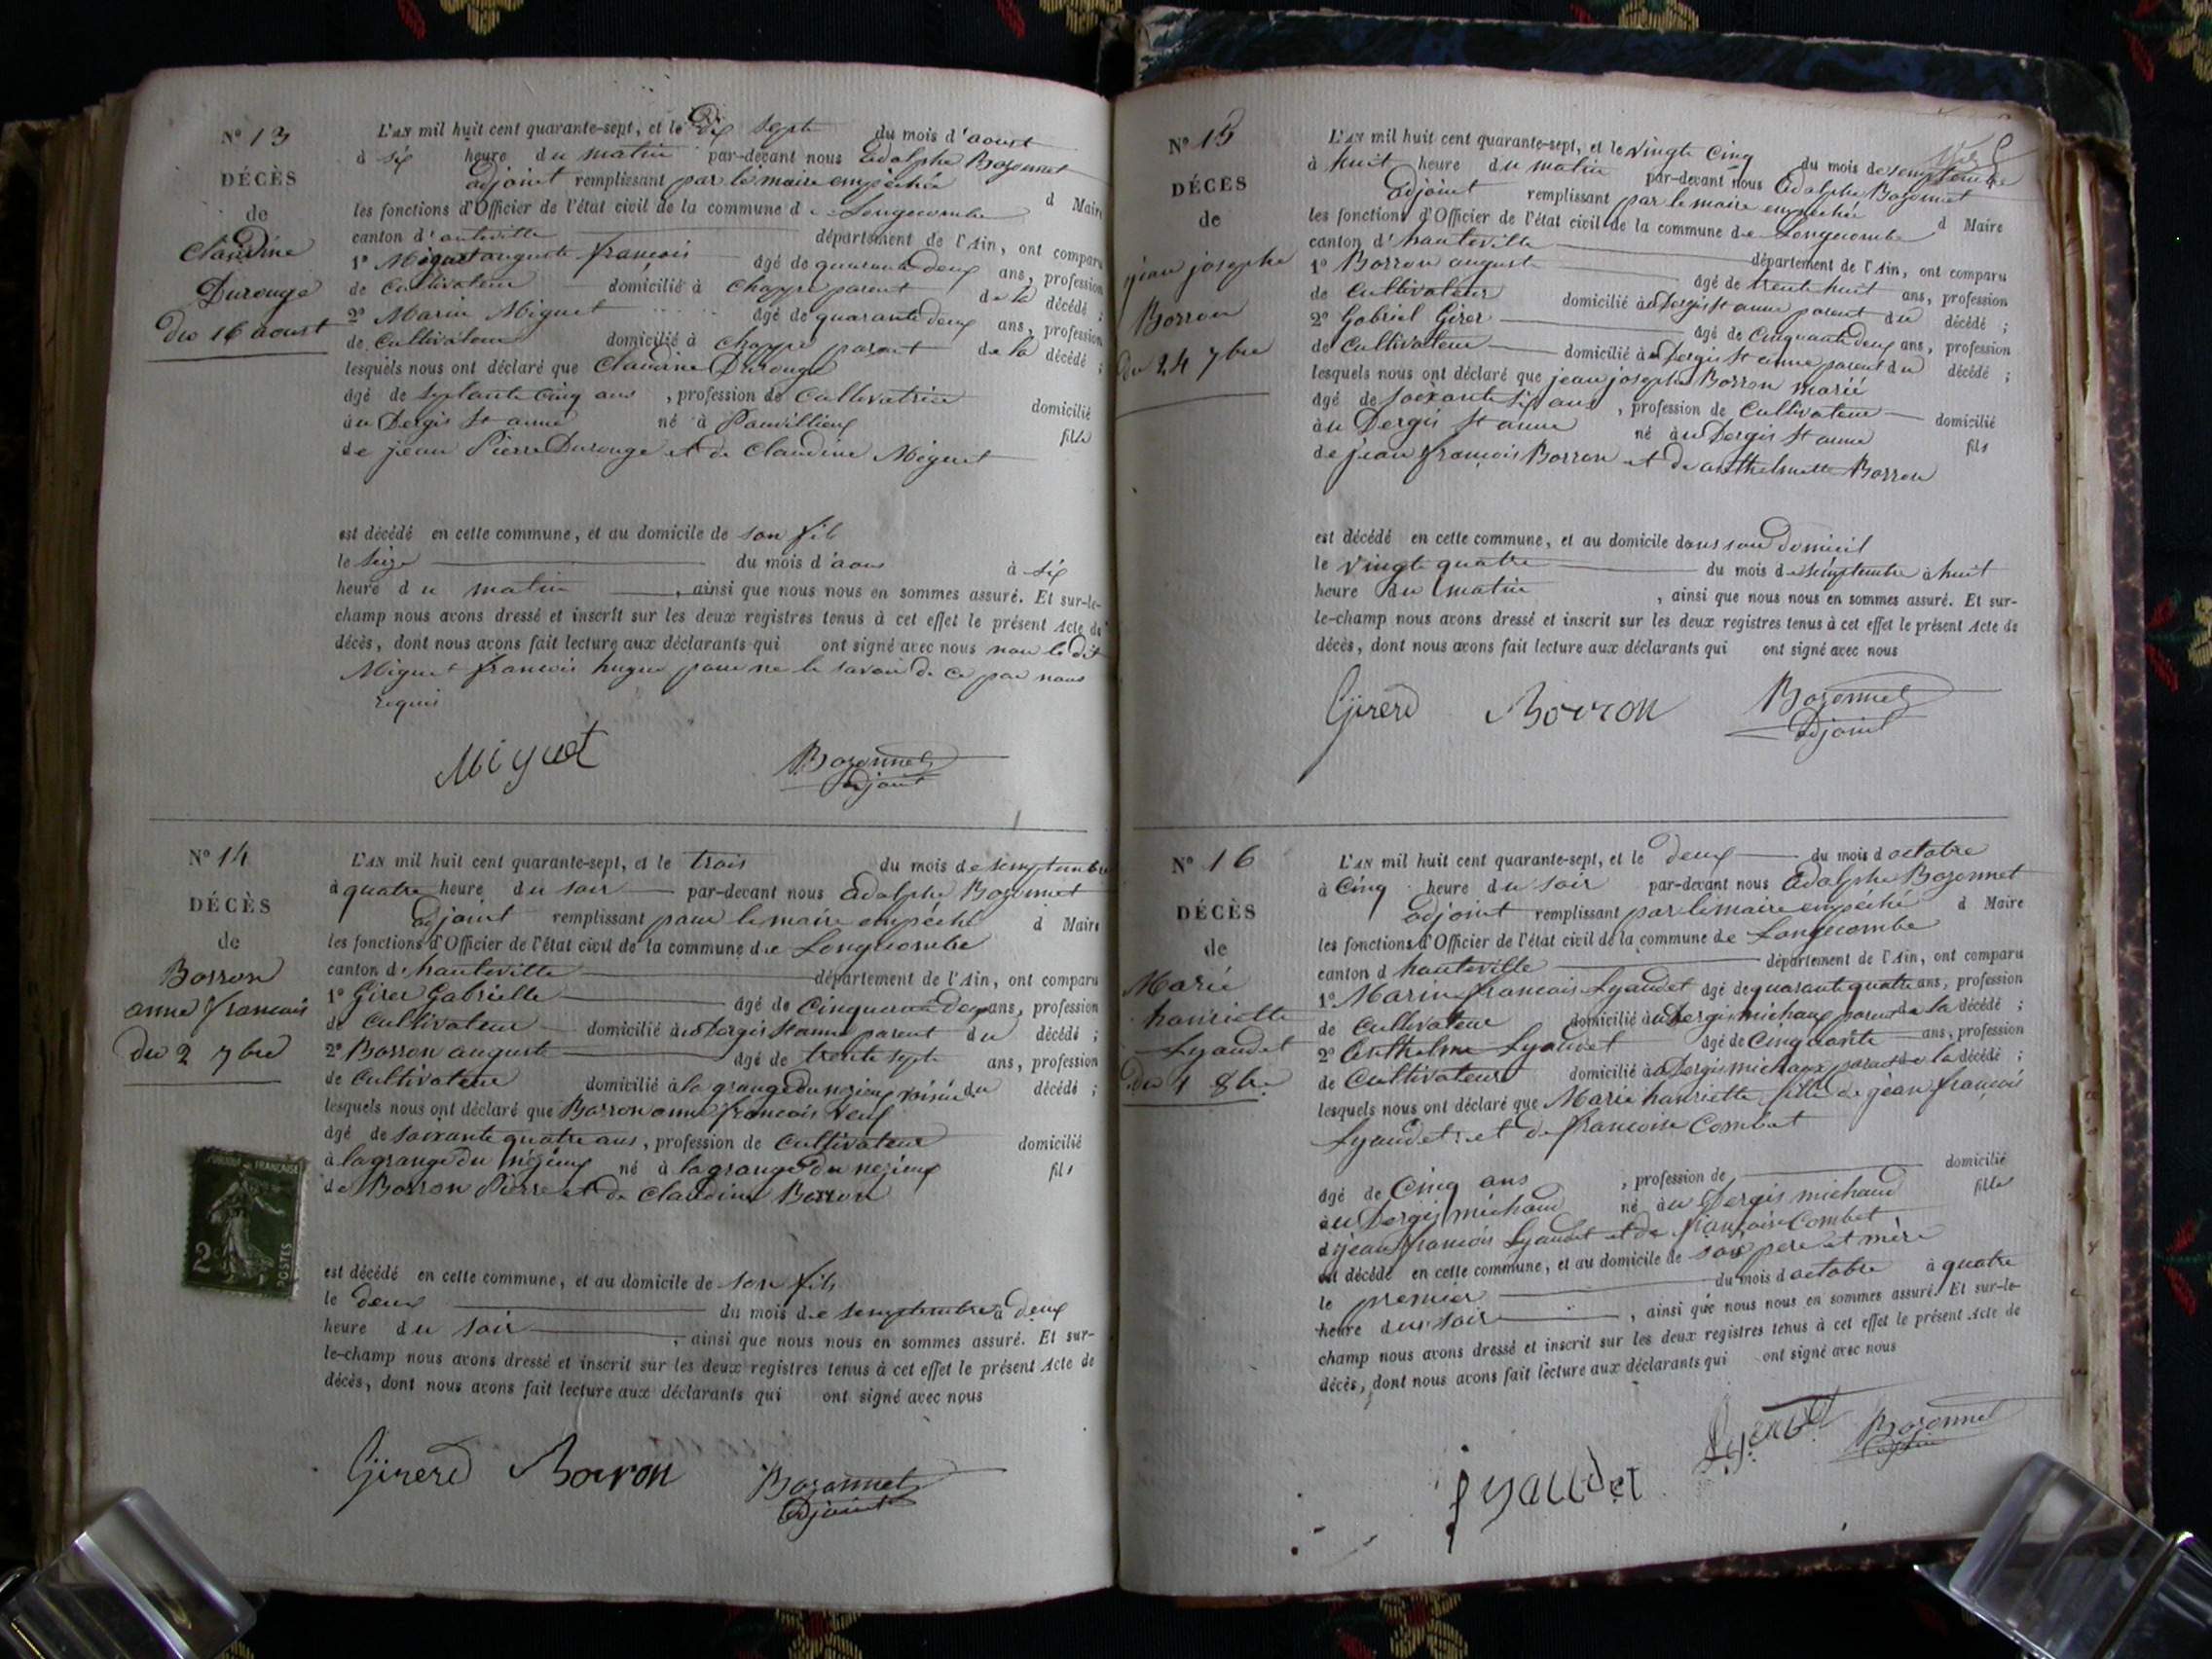 Nº 13
DÉCÈS
de
Claudine
Durouge
du 16 aoust
L'AN mil huit cent quarante-sept, et le Dix sept du mois d'aoust
à six heure du matin par-devant nous Adolphe Bozonnet
adjoint remplissant par le maire empêchée d Maire
les fonctions d'Officier de l'état civil de la commune de Longecombe
canton d'auteville département de l'Ain, ont comparu
1º Miguet auguste françois âgé de quarante deux ans, profession
de Cultivateur domicilié à Chappe parent de la décédé ;
2º Marin Miguet âgé de quarante deux ans, profession
de Cultivateur domicilié à Chappe parent de la décédé ;
lesquels nous ont déclaré que Claudine Durouge
âgé de septante Cinq ans , profession de Cultivatrice domicilié
à u Dergis St anne né à fille
de jean Pierre Durouge et de Claudine Miguet
est décédé en cette commune, et au domicile de son fils
le seize du mois d'aous à six
heure du matin , ainsi que nous nous en sommes assuré. Et sur-le-
champ nous avons dressé et inscrit sur les deux registres tenus à cet effet le présent Acte de
décès, dont nous avons fait lecture aux déclarants qui ont signé avec nous non le dit
Miguet francois pour ne le savoir de ce par nous
requis
Miguet Bozonnet
adjoint
Nº 14
DÉCÈS
de
Borron
anne francois
du 2 7bre
L'AN mil huit cent quarante-sept, et le trois du mois de semptembre
à quatre heure du soir par-devant nous Adolphe Bozonnet
adjoint remplissant pour le maire empeché d Maire
les fonctions d'Officier de l'état civil de la commune de Longecombe
canton d'hauteville département de l'Ain, ont comparu
1º Girer Gabrielle âgé de Cinquante deux ans, profession
de Cultivateur domicilié àu Dergis St anne parent du décédé ;
2º Borron auguste âgé de trente sept ans, profession
de Cultivateur domicilié à la grange du nezieux voisin du décédé ;
lesquels nous ont déclaré que Borron anne francois veuf
âgé de soixante quatre ans , profession de Cultivateur domicilié
à la grange du nézieux né à la grange du nezieux fils
de Borron Pierre et de Claudine Borron
est décédé en cette commune, et au domicile de son fils
le deux du mois de semptembre à deux
heure du soir , ainsi que nous nous en sommes assuré. Et sur-
le-champ nous avons dressé et inscrit sur les deux registres tenus à cet effet le présent Acte de
décès, dont nous avons fait lecture aux déclarants qui ont signé avec nous
Girerd Borron Bozonnet
adjoint
RÉPUBLIQUE FRANÇAISE
2c
POSTES
Nº 15
DÉCÈS
de
jean josephe
Borron
du 24 7bre
L'AN mil huit cent quarante-sept, et le vingte Cinq du mois de semptembre
à huit heure du matin par-devant nous Adolphe Bozonnet
adjoint remplissant par le maire empechée d Maire
les fonctions d'Officier de l'état civil de la commune de Longecombe
canton d'hauteville département de l'Ain, ont comparu
1º Borron auguste âgé de trente huit ans, profession
de Cultivateur domicilié àu Dergis St anne parent du décédé ;
2º Gabriel Girer âgé de Cinquante deux ans, profession
de Cultivateur domicilié àu Dergis St anne parent du décédé ;
lesquels nous ont déclaré que jean josephe Borron marié
âgé de soixante six ans , profession de Cultivateur domicilié
àu Dergis St anne né àu Dergis St anne fils
de jean françois Borron et de anthelmette Borron
est décédé en cette commune, et au domicile dans son domicil
le vingt quatre du mois de semptembre à huit
heure du matin , ainsi que nous nous en sommes assuré. Et sur-
le-champ nous avons dressé et inscrit sur les deux registres tenus à cet effet le présent Acte de
décès, dont nous avons fait lecture aux déclarants qui ont signé avec nous
Girerd Borron Bozonnet
adjoint
Nº 16
DÉCÈS
de
Marie
hanriette
Lyaudet
du 1 8bre
L'AN mil huit cent quarante-sept, et le deux du mois d octobre
à Cinq heure du soir par-devant nous Adolphe Bozonnet
adjoint remplissant par le maire empeché d Maire
les fonctions d'Officier de l'état civil de la commune de Longecombe
canton d hauteville département de l'Ain, ont comparu
1º Marin francois Lyaudet âgé de quarante quatre ans, profession
de Cultivateur domicilié àu Dergis michaux parent de la décédé ;
2º Anthelme Lyaudet âgé de Cinquante ans, profession
de Cultivateur domicilié àu Dergis michaux parent de la décédé ;
lesquels nous ont déclaré que Marie hanriette fille de jean françois
Lyaudet et de francoise Combet
âgé de Cinq ans , profession de domicilié
àu Dergis michaud né àu Dergis michaud fille
d jean francois Lyaudet et de françoise Combet
est décédé en cette commune, et au domicile de ses pere et mère
le premier du mois d octobre à quatre
heure du soir , ainsi que nous nous en sommes assuré. Et sur-le-
champ nous avons dressé et inscrit sur les deux registres tenus à cet effet le présent Acte de
décès, dont nous avons fait lecture aux déclarants qui ont signé avec nous
Lyaudet Lyaudet Bozonnet
adjoint